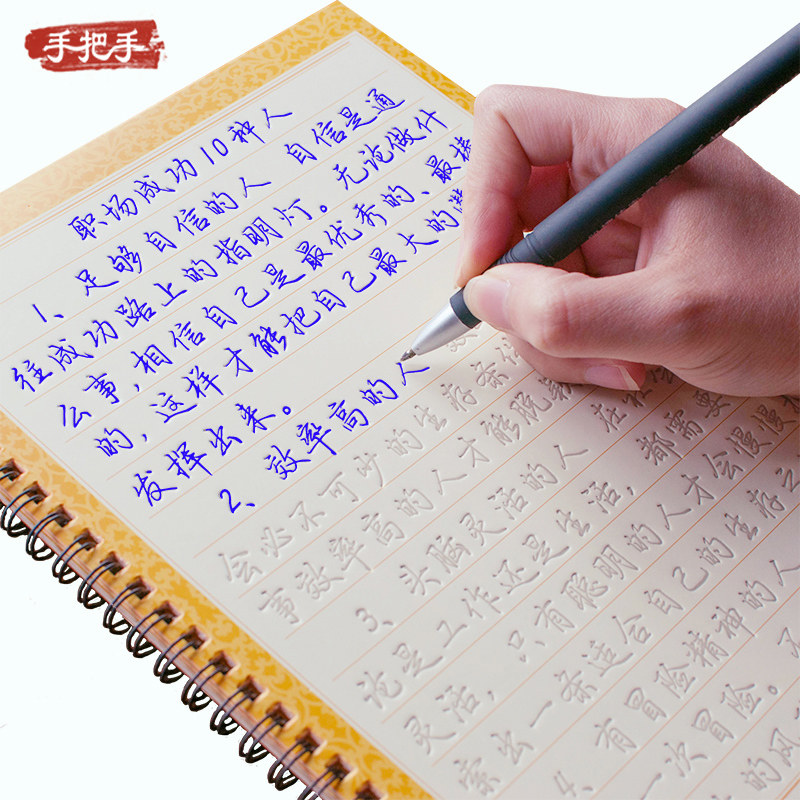 手把手
职场成功10种人
1、足够自信的人 自信是通
往成功路上的指明灯。无论做什
么事,相信自己是最优秀的、最棒
的,这样才能把自己最大的潜
发挥出来。
2、效率高的人 效
会必不可少的生存条件
事效率高的人才能脱颖
3、头脑灵活的人 在社会
论是工作还是生活,都需要
灵活,只有聪明的人才会慢慢摸
索出一条适合自己的生存之
4、有冒险精神的人
一次冒险。
的风